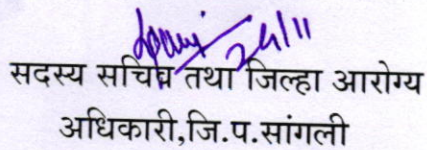 24/11
सदस्य सचिव तथा जिल्हा आरोग्य
अधिकारी,जि.प.सांगली